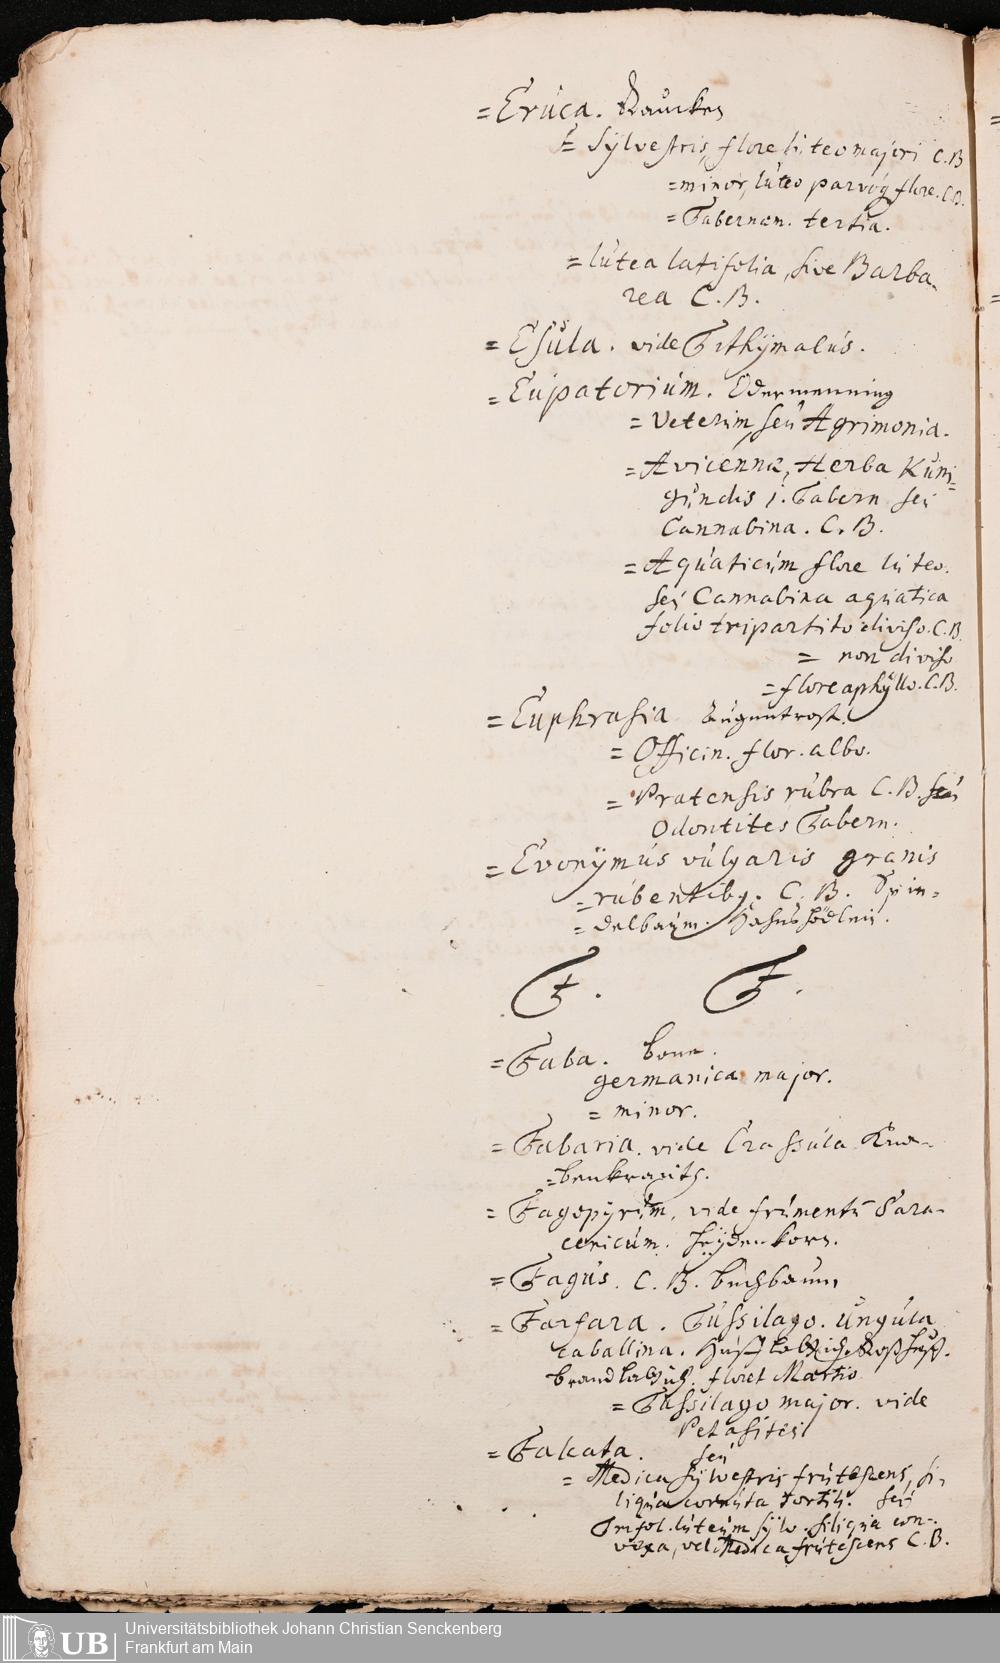 = Erúca. Raucken
= Sÿlvestris, flore lúteo majori C.B
= minor, lúteo parvóq flore. C.B.
= Tabernæm. tertia.
= lútea latifolia, sive Barba-
rea C. B.
= Esúla. vide Tithÿmalús.
= Eúpatoriúm. Odermenning
= Veterúm, seú Agrimonia.
= Avicennæ, Herba Kúni-
gúndis j. Tabern seú
Cannabina. C. B.
= Aqúaticúm flore lúteo.
seú Cannabina aqúatica
folio tripartito diviso. C.B.
= non diviso
= flore aphÿllo. C.B.
= Eúphrasia Aúgentrost.
= Officin. flor. albo.
= Pratensis rúbra C.B. seú
Odontites Tabern.
= Evonÿmús vúlgaris granis
= rúbentibq. C. B. Spin=
= delbaúm.
F. F.
= Faba. bone.
germanica major.
= minor.
= Fabaria. vide Crassúla Kna-
= benkraúth.
= Fagopÿrúm, vide frúmentú Sara-
cenicúm. Heÿdenkorn.
= Fagús. C. B. buchbaum
= Farfara. Tússilago. Úngúla
caballina. Húst lattich. Roßhúff.
brandlattich. floret Martio
= Tússilago major. vide
Petasites
= Falcata. seú
= Medica sÿlvestris frútescens, si-
liqúa cornúta tortili. seú
Trifol. lúteúm sÿlv. siliqúa con-
vexa, vel Medica frútescens C.B.
Universitätsbibliothek Johann Christian Senckenberg
Frankfurt am Main
UB